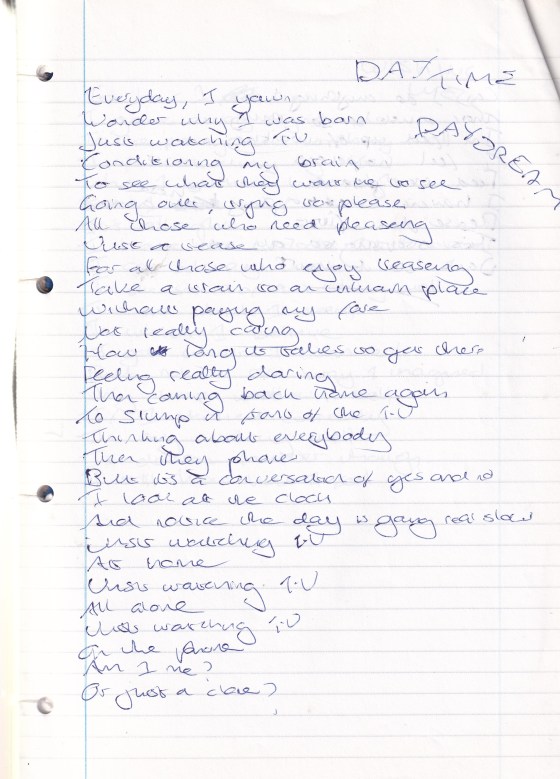 DAY/TIME
DAYDREAM
Everyday, I yawn
Wonder why I was born
Just watching T.V
Conditioning my brain
To see what they want me to see
Going out, trying to please
All those who need pleaseng
Just a tease
For all those who enjoy teaseng
Take a train to an unknown place
Without paying my fare
Not really caring
How long it takes to get there
Feeling really daring
Then coming back home again
To slump in front of the T.V
Thinking about everybody
Then they phone
But it's a conversation of yes and no
I look at the clock
And notice the day is going real slow
Just watching T.V
At home
Just watching T.V
All alone
Just watching T.V
On the phone
Am I me?
Or just a clone?